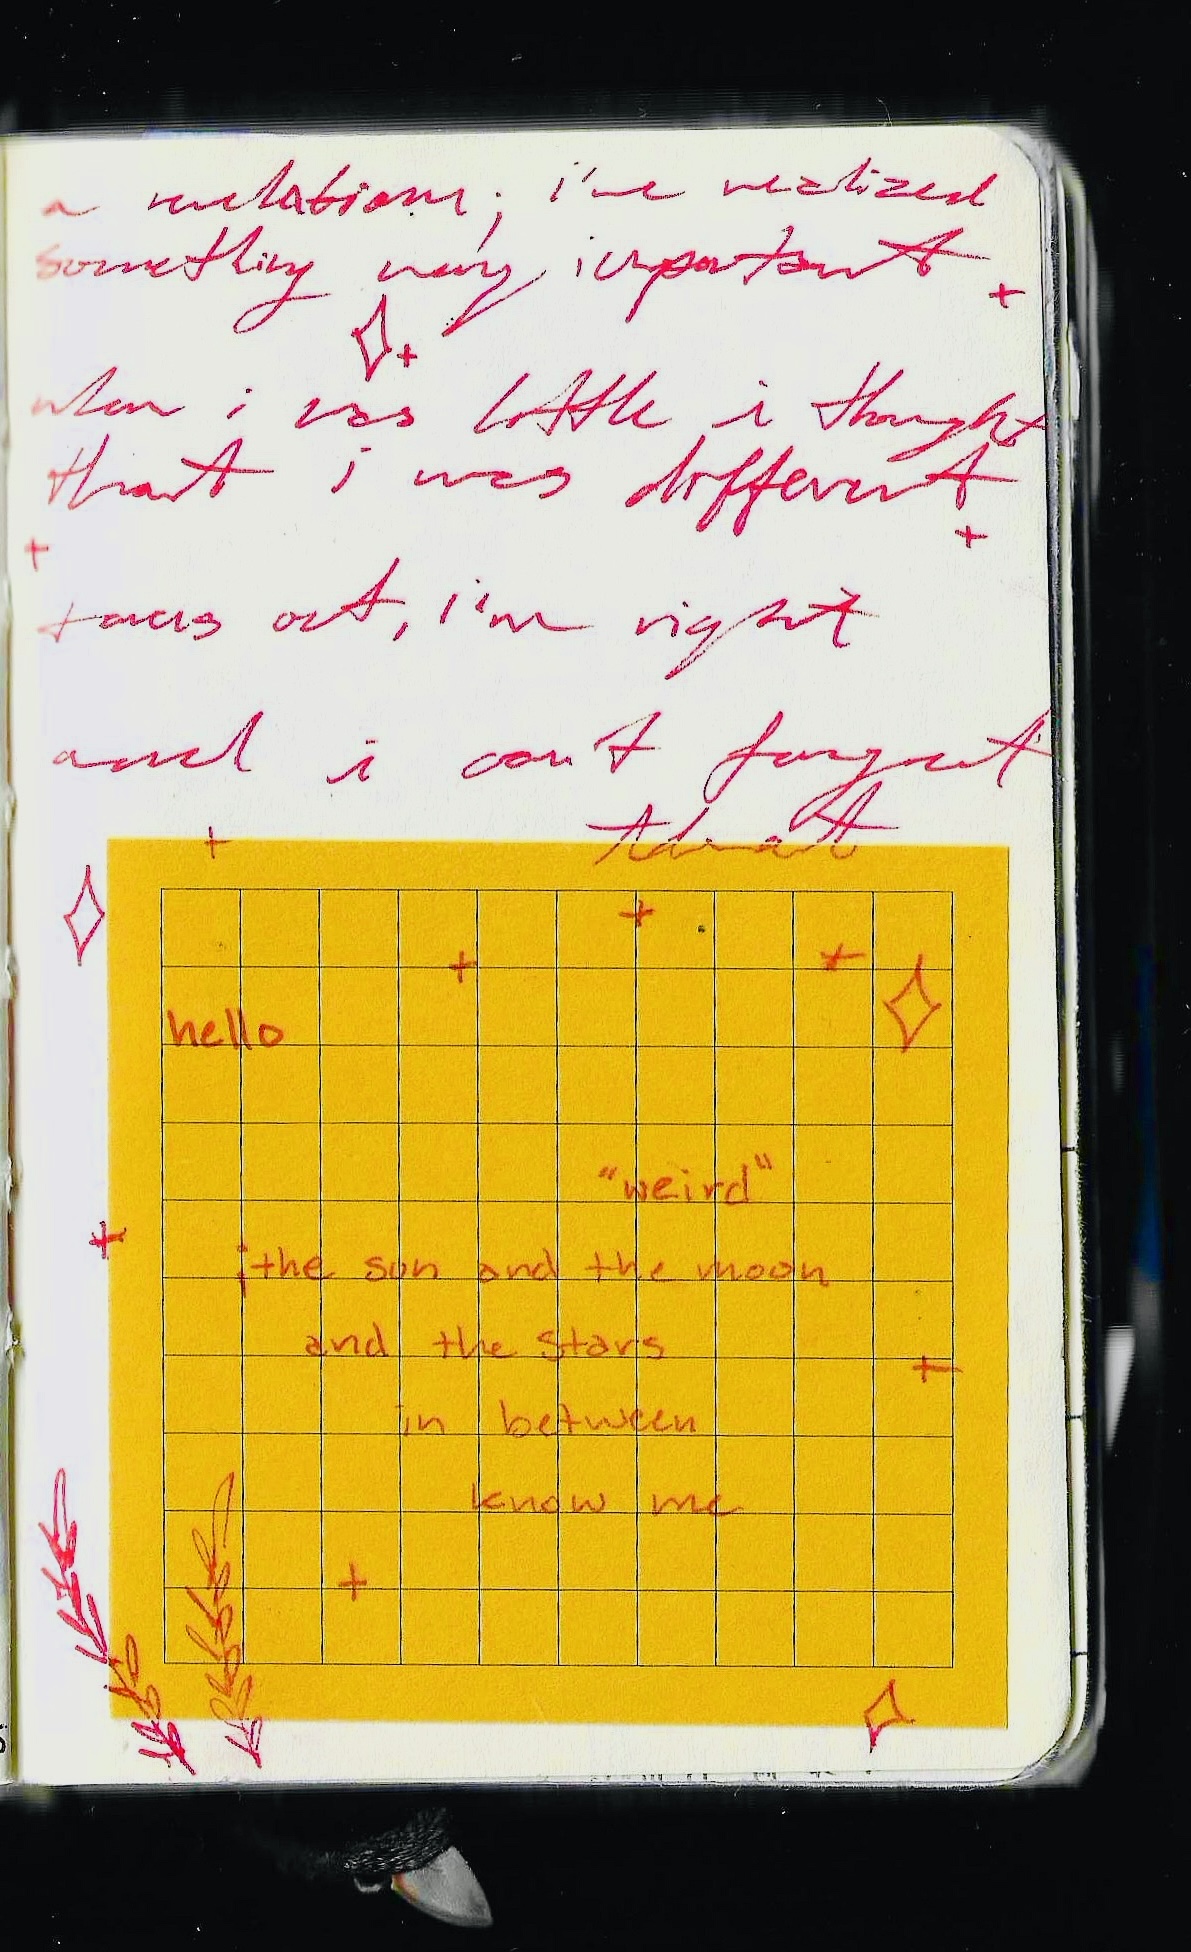 a revelation; i've realized
something very important
when i was little i thought
that i was different
turns out, i'm right
and i can't forget
that
hello
"weird"
;the sun and the moon
and the stars
in between
know me